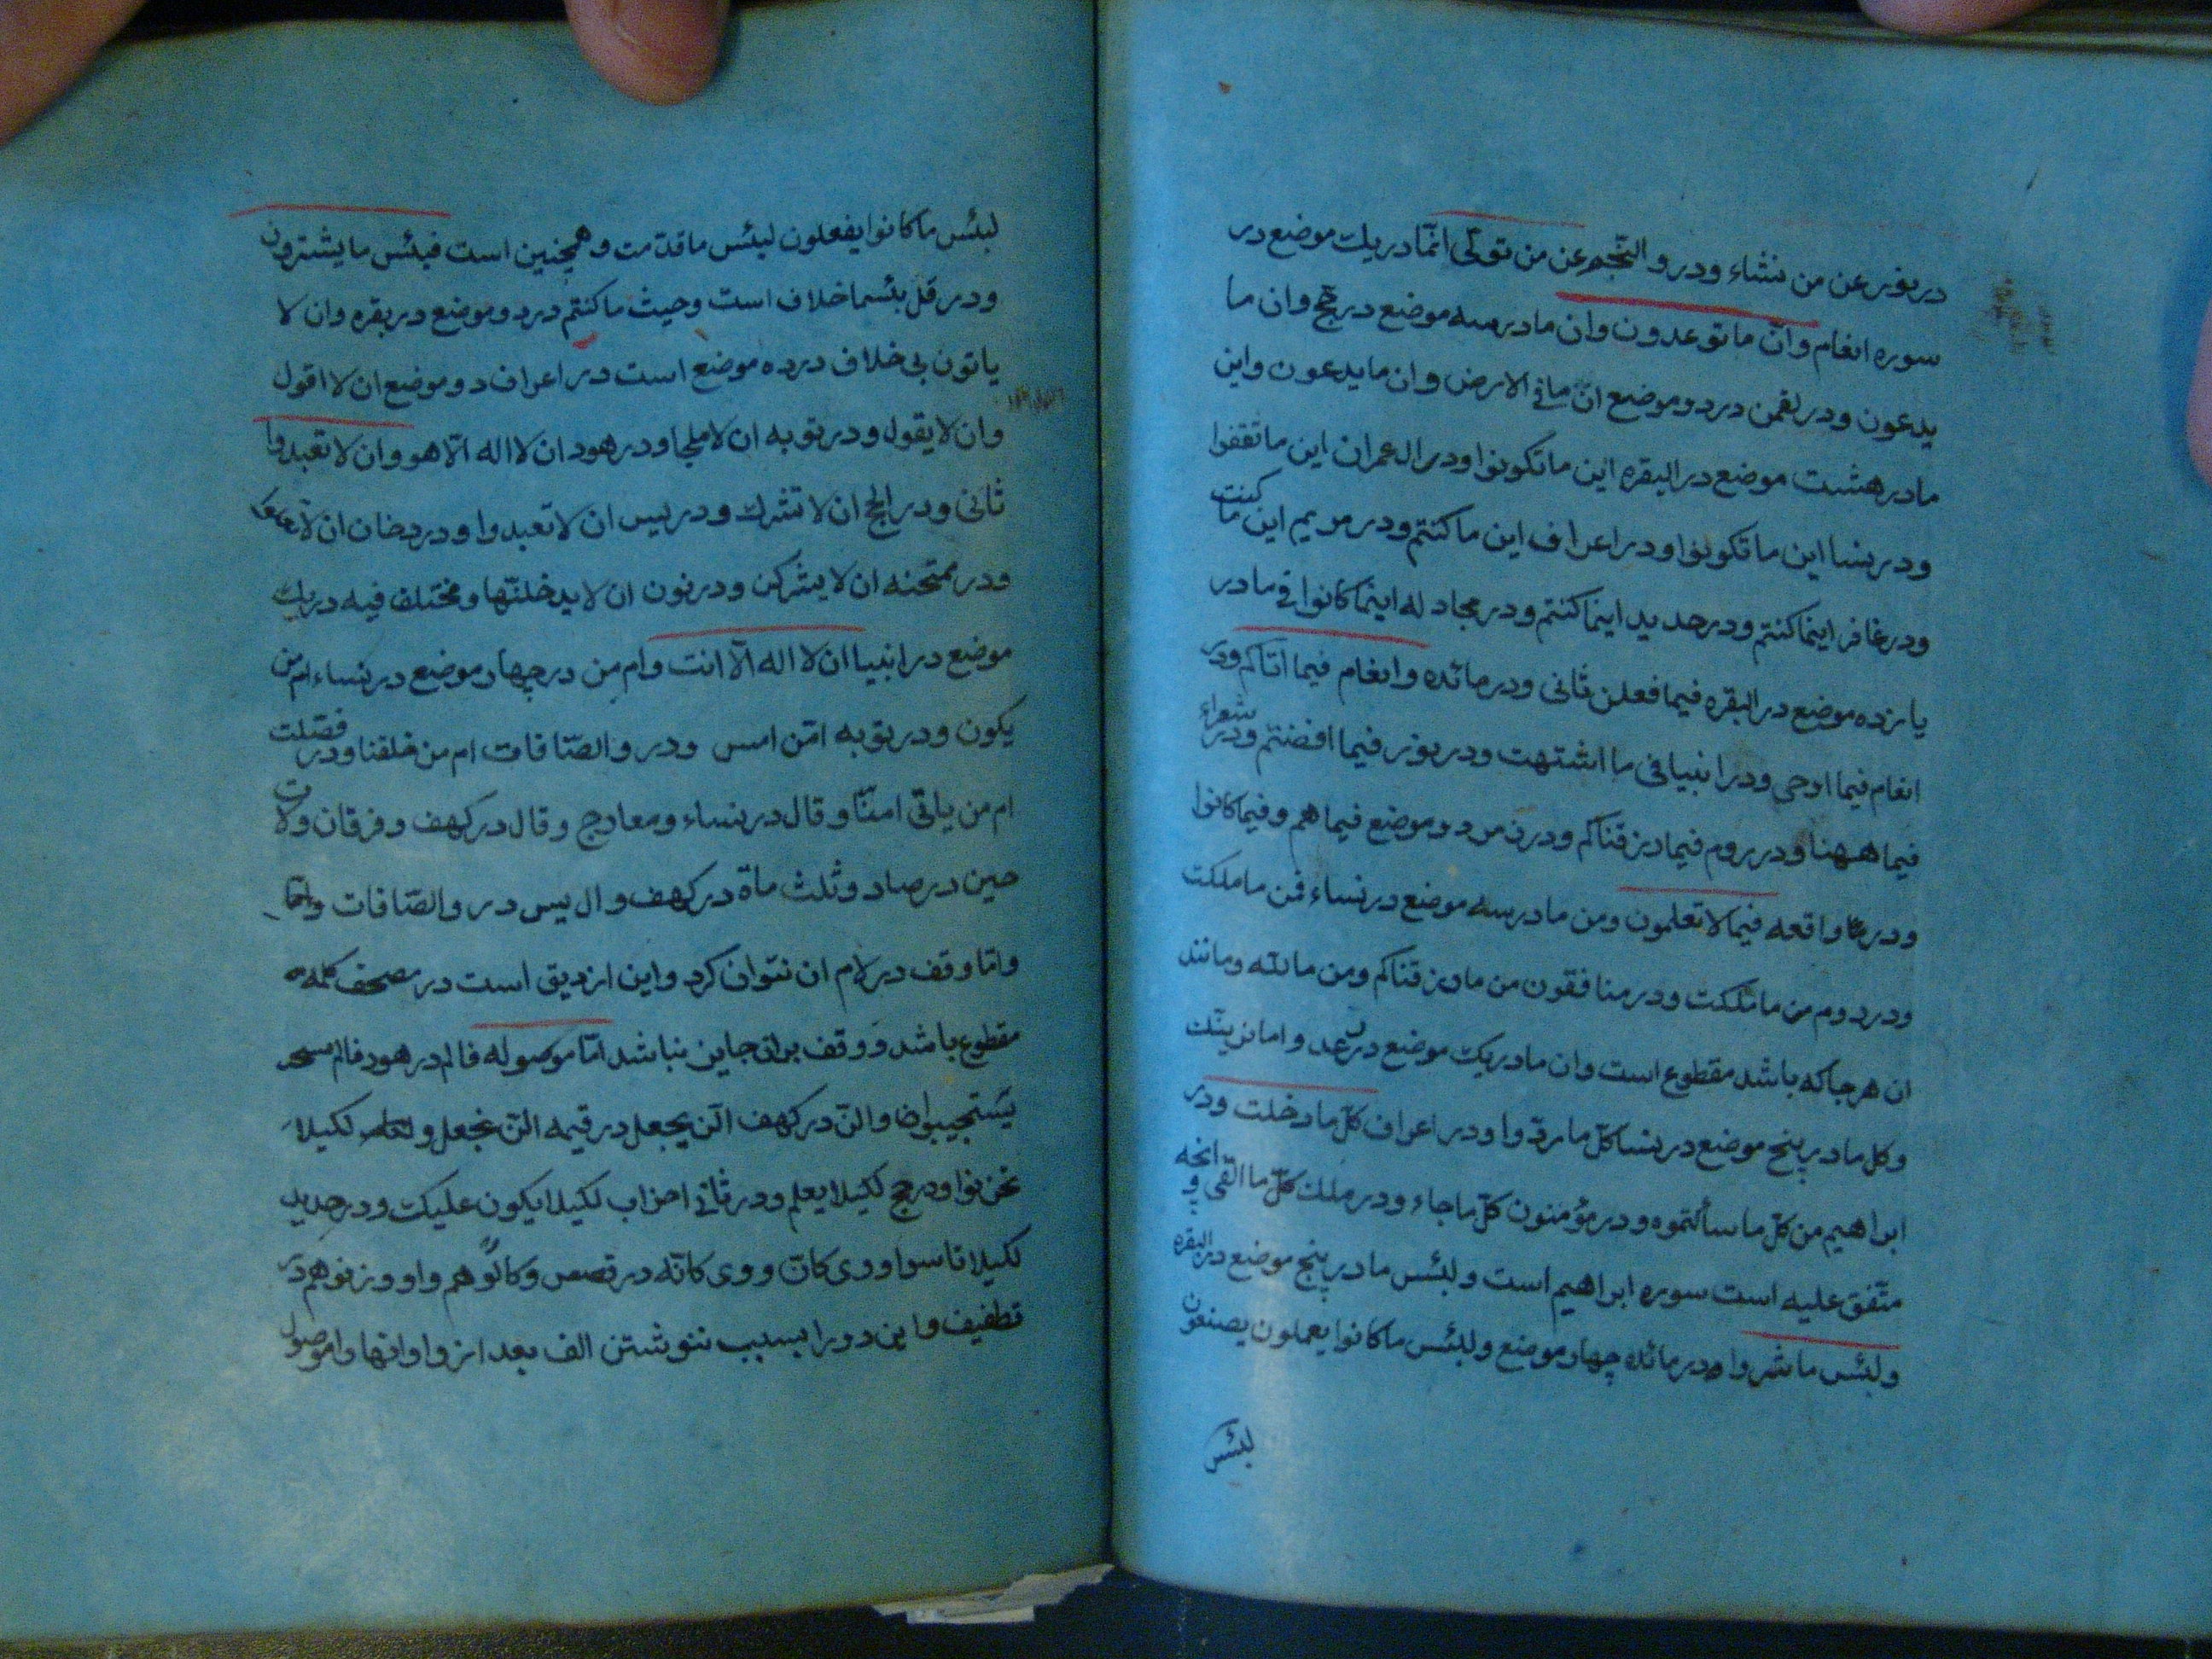 در نور عن من یشاء و در والنّجم عن من تولّی انّما در یک موضع در
سوره انعام و انّ ما توعدون و ان ما در سه موضع در حج و ان ما
یدعون و در لقمن در دو موضع انّ ما فی الارض و ان ما یدعون و این
ما در هشت موضع در البقره این ما تکونوا و در ال عمران این ما ثقفوا
و در نسا این ما تکونوا و در اعراف این ما کنتم و در مریم این ما کنت
و در غافر اینما کنتم و در حدید اینما کنتم و در مجادله اینما کانوا فی ما در
یازده موضع در البقره فیما فعلن ثانی و در مائده و انعام فیما اتاکم و در
انعام فیما اوحی و در انبیا فی ما اشتهت و در نور فیما افضتم و در شعراء
فیما ههنا و در روم فیما رزقناکم و در زمر دو موضع فیما هم و فیما کانوا
و در واقعه فیما لا تعلمون و من ما در سه موضع در نساء فمن ما ملکت
و در روم من ما ملکت و در منافقون من ما رزقناکم و من مالله و مانند
ان هر جا که باشد مقطوع است و ان ما در یک موضع در رعد و اما نرینّک
و کل ما در پنج موضع در نسا کلّ ما ردّوا و در اعراف کلّ ما دخلت و در
ابراهیم من کلّ ما سألتموه و در مؤمنون کلّ ما جاء و در ملک کلّ ما القی و انچه
متّفق علیه است سوره ابراهیم است و لبئس ما در پنج موضع در البقره
و لبئس ما شروا و در مائده چهار موضع و لبئس ما کانوا یعملون یصنعون
لبئس
لبئس ما کانوا یفعلون لبئس ما قدّمت و همچنین است فبئس ما یشترون
و در قل بئسما خلاف است و حیث ما کنتم در دو موضع در بقره و ان لا
یا نون بی خلاف در ده موضع است در اعراف دو موضع ان لا اقول
و ان لا یقول و در توبه ان لا ملجا و در هود ان لا اله الّا هو و ان لا تعبدوا
ثانی و در الحج ان لا تشرک و در یس ان لا تعبدوا و در دخان ان لا تعلوا
و در ممتحنه ان لا یشرکن و در نون ان لا یدخلنّها و مختلف فیه در یک
موضع در انبیا ان لا اله الّا انت و ام من در چهار موضع در نساء ام من
یکون و در توبه امّن اسس و در والصّافات ام من خلقنا و در فصّلت
ام من یاتی امنّا و قال در نساء و معارج و قال در کهف و فرقان و لات
حین در صاد و ثلث ماة در کهف و ال یس در والصّافات و امّا
و امّا وقف در لام ان نتوان کرد و این از دیق است در مصحف کلمه
مقطوع باشد و وقف بران جاین نباشد امّا موصوله فالم در هود فالم
یستجیبوا و الن در کهف الّن یجعل در قیمه الّن نجعل و لکیلا
نحن نوا و در حج لکیلا یعلم و در ثانی احزاب لکیلا یکون علیک و در حدید
لکیلا تاسوا و وی کانّ و وی کانّه در قصص و کالوهم و او وزنوهم در
تطفیف و این دو را بسبب ننوشتن الف بعد از واو انها را موصول